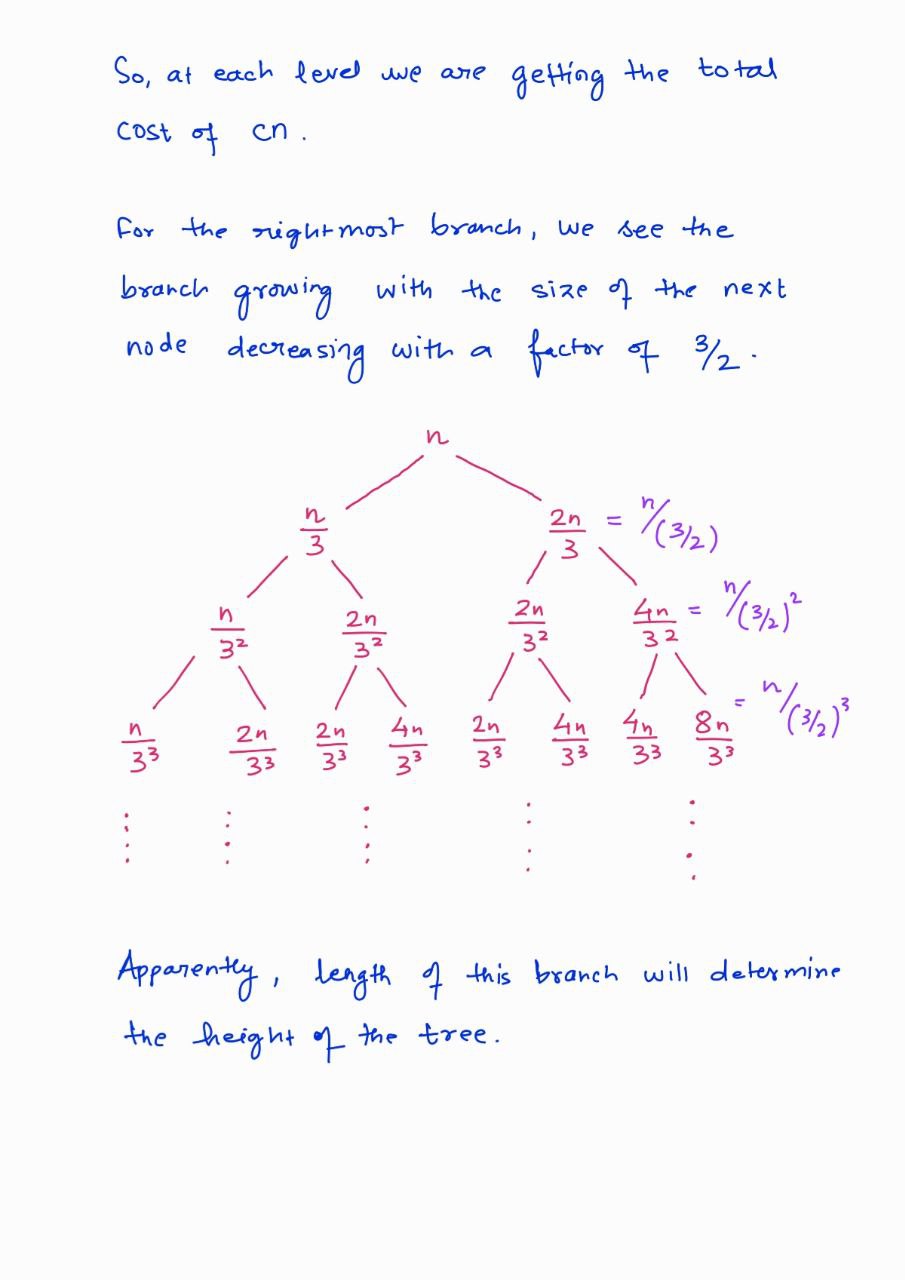 So, at each level we are getting the total
cost of cn.
For the rightmost branch, we see the
branch growing with the size of the next
node decreasing with a factor of 3/2.
n
n/3 2n/3 = n/(3/2)
n/3² 2n/3² 2n/3² 4n/3² = n/(3/2)²
n/3³ 2n/3³ 2n/3³ 4n/3³ 2n/3³ 4n/3³ 4n/3³ 8n/3³ = n/(3/2)³
Apparently, length of this branch will determine
the height of the tree.